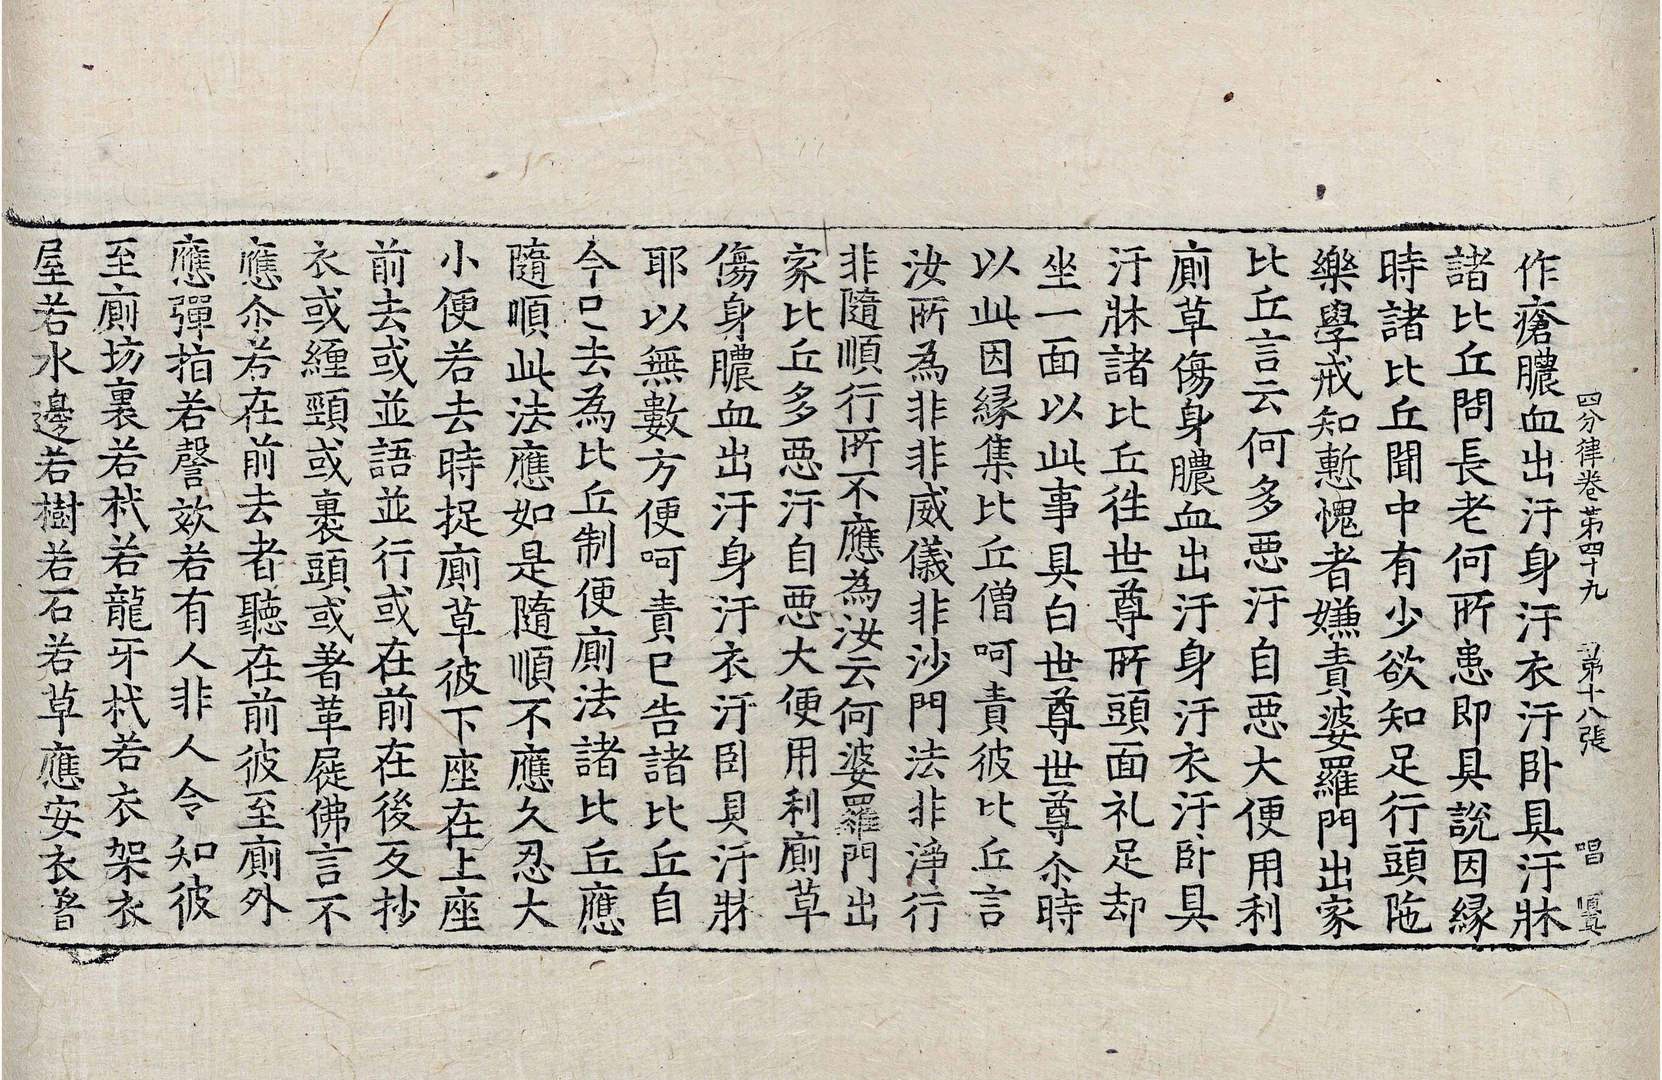 四分律卷苐四十九 第十八張 唱 顛
作瘡膿血出汙身汙衣汙卧具汙牀
諸比丘問長老何所患即具說因縁
時諸比丘聞中有少欲知足行頭陁
樂學戒知慙愧者嫌責婆羅門出家
比丘言云何多惡汙自惡大便用利
廁草傷身膿血出汙身汙衣汙卧具
汙牀諸比丘徃世尊所頭面礼足却
坐一面以此事具白世尊世尊尒時
以此因縁集比丘僧呵責彼比丘言
汝所為非非威儀非沙門法非淨行
非隨順行所不應為汝云何婆羅門出
家比丘多惡汙自惡大便用利廁草
傷身膿血出汙身汙衣汙卧具汙牀
耶以無數方便呵責已告諸比丘自
今已去為比丘制便廁法諸比丘應
隨順此法應如是隨順不應久忍大
小便若去時捉廁草彼下座在上座
前去或並語並行或在前在後反抄
衣或纏頸或裹頭或著革屣佛言不
應尒若在前去者聽在前彼至廁外
應彈指若謦欬若有人非人令知彼
至廁坊裏若杙若龍牙杙若衣架衣
屋若水邊若樹若石若草應安衣著